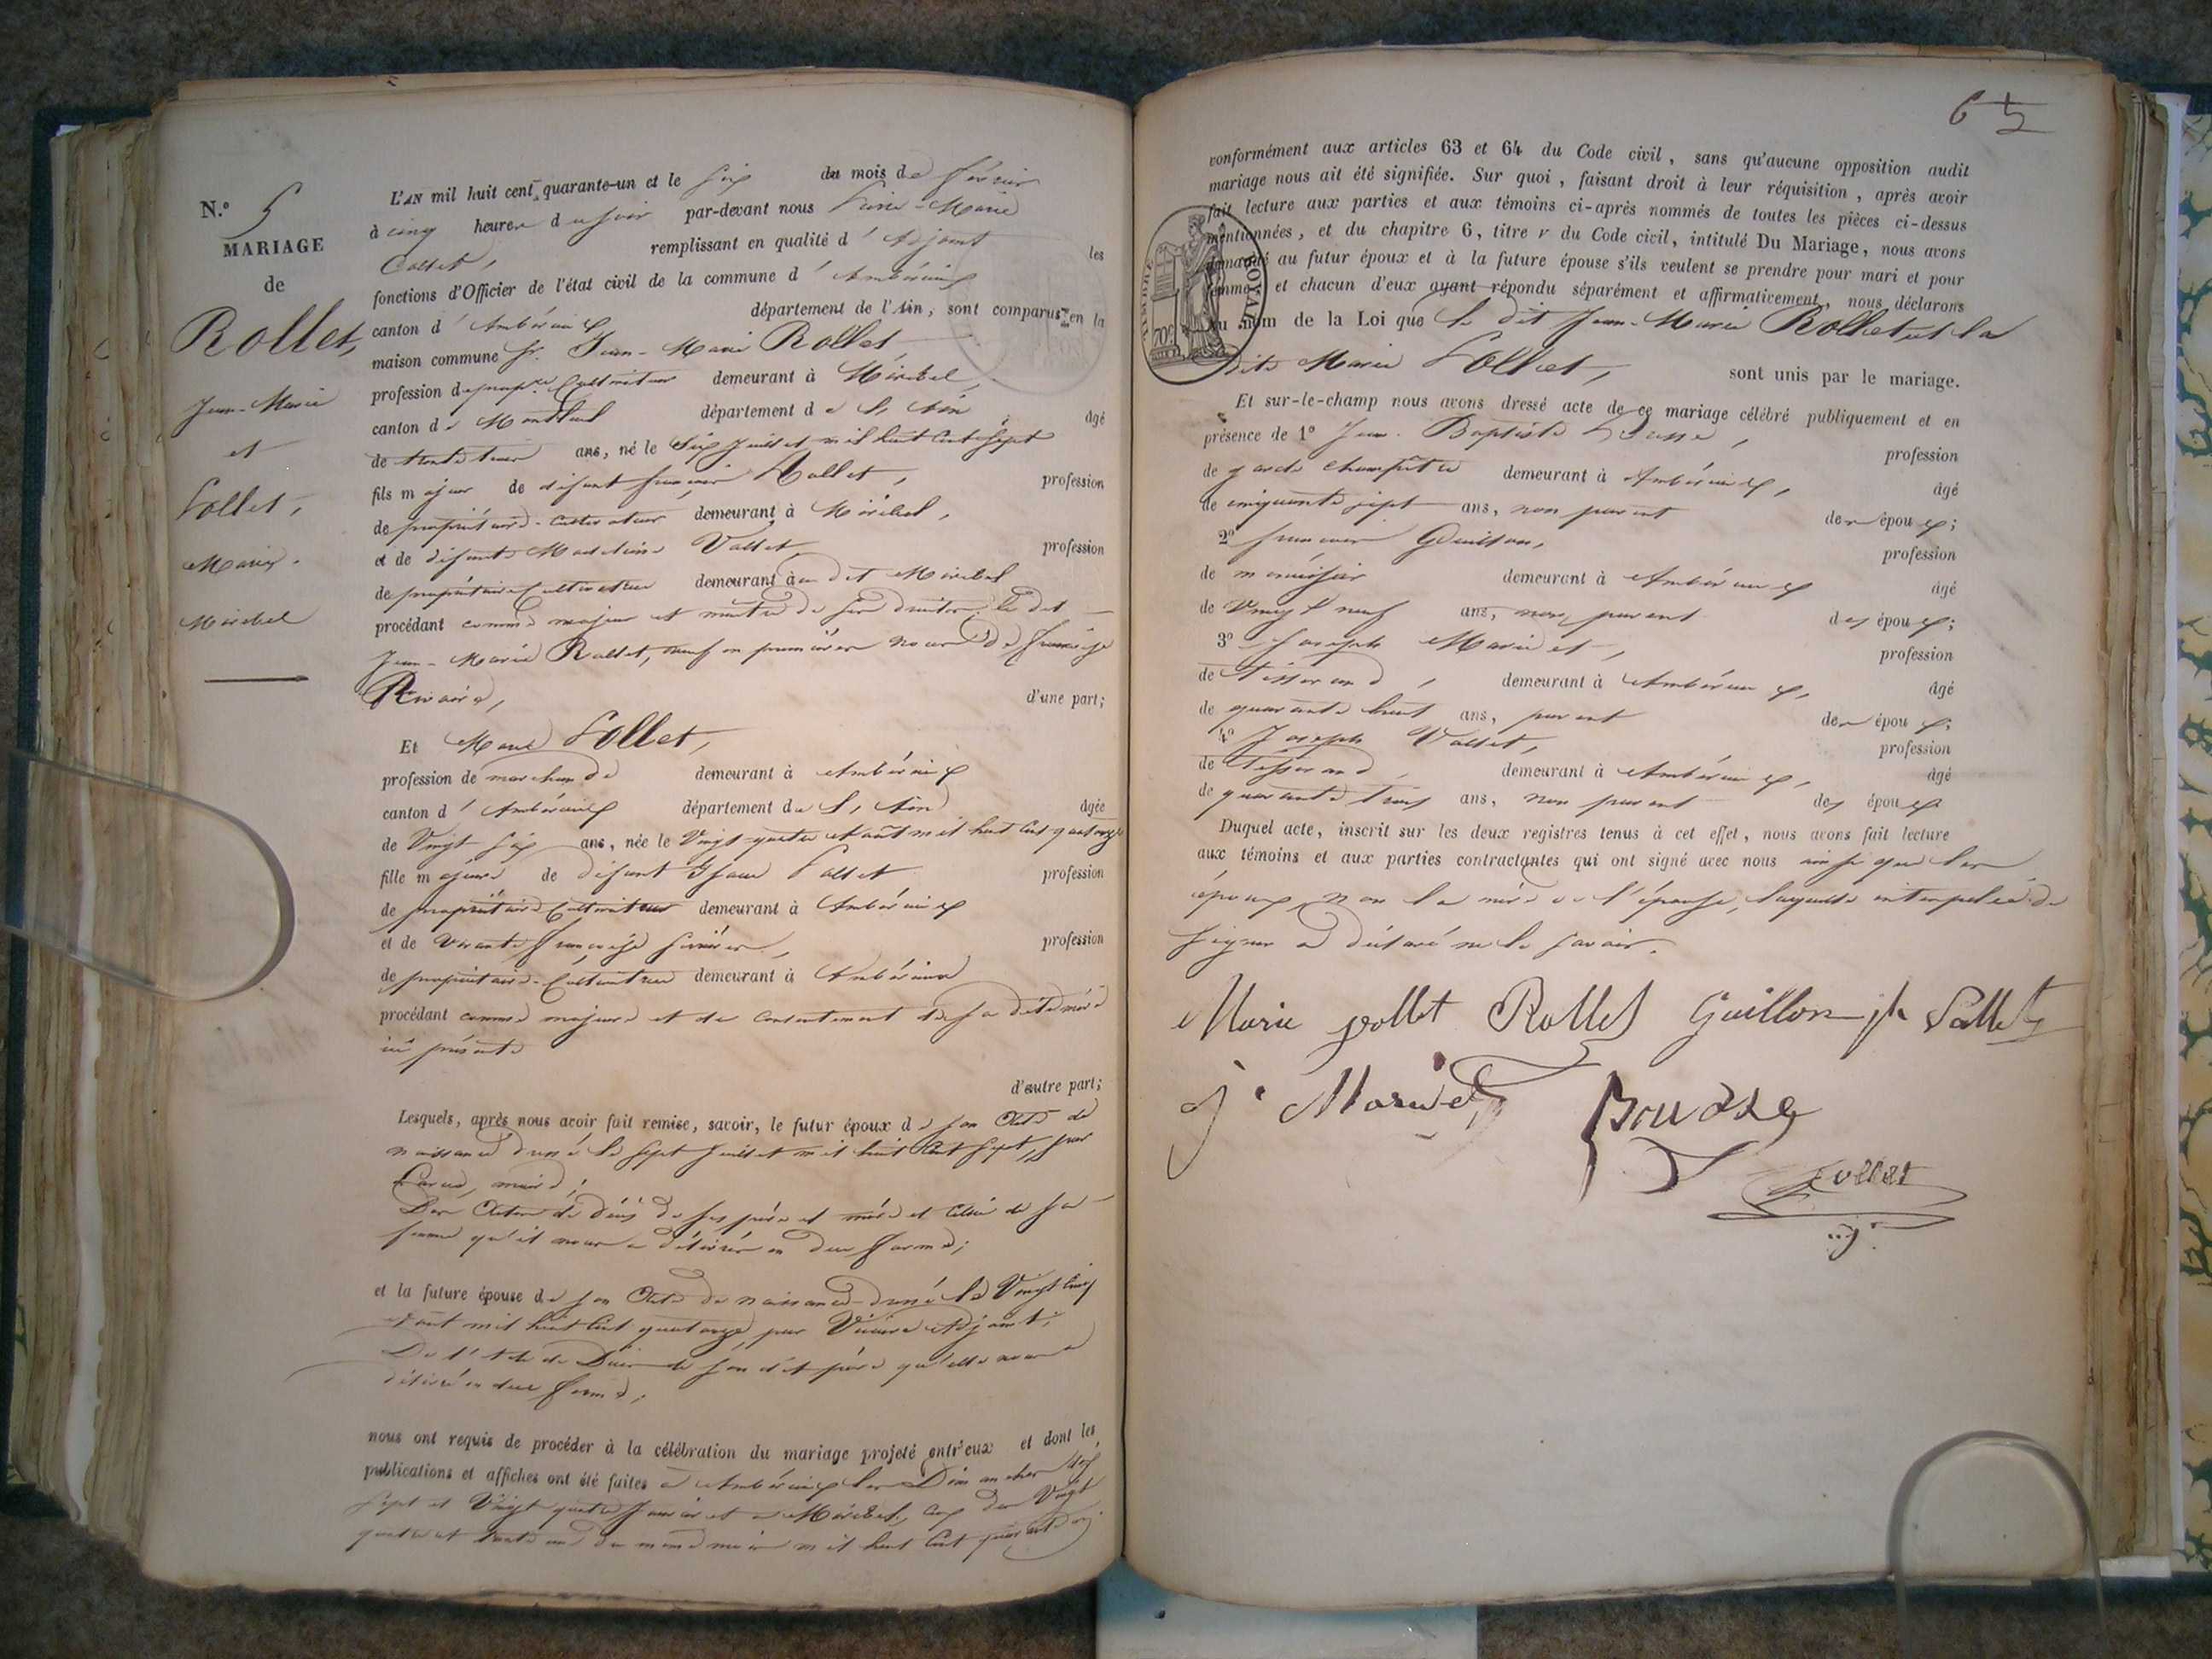 N.º 5
MARIAGE
de
Rollet,
Jean-Marie
et
Follet,
Marie.
Miribel
L'AN mil huit cent quarante-un et le six du mois de février
à cinq heures du soir par-devant nous Marie
remplissant en qualité d'Adjoint les
fonctions d'Officier de l'état civil de la commune d'Ambérieux
canton d'Ambérieux département de l'Ain, sont comparus en la
maison commune Sr. Jean-Marie Rollet
profession de Cultivateur demeurant à Miribel,
canton de Montluel département de l'Ain âgé
de trente trois ans, né le Six Juillet mil huit cent sept
fils majeur de défunt françois Rollet, profession
de propriétaire-cultivateur demeurant à Miribel,
et de défunte Madeleine Vallet, profession
de propriétaire Cultivatrice demeurant au dit Miribel
procédant comme majeur et maitre de ses droits, le dit
Jean-Marie Rollet, veuf en premières noces de françoise
d'une part;
Et Marie Follet,
profession de marchande demeurant à Ambérieux
canton d'Ambérieux département de l'Ain âgée
de Vingt six ans, née le Vingt-quatre Août mil huit cent quatorze
fille majeure de défunt Follet profession
de propriétaire Cultivateur demeurant à Ambérieux
et de vivante françoise profession
de propriétaire-Cultivatrice demeurant à Ambérieux
procédant comme majeure et du consentement de sa dite mère
ici présente
d'autre part;
Lesquels, après nous avoir fait remise, savoir, le futur époux de son Acte de
naissance dressé le sept Juillet mil huit cent sept, par
maire;
Des Actes de décès de ses père et mère et celui de sa
femme qu'il nous a délivrés en due forme;
et la future épouse de son Acte de naissance dressé le Vingt cinq
Août mil huit cent quatorze, par Adjoint;
De l'Acte de Décès de son dit père qu'elle nous a
délivré en due forme;
nous ont requis de procéder à la célébration du mariage projeté entr'eux et dont les
publications et affiches ont été faites à Ambérieux les Dimanches dix
sept et Vingt quatre Janvier et à Miribel, Vingt
quatre et trente un du même mois mil huit cent quarante un
65
conformément aux articles 63 et 64 du Code civil, sans qu'aucune opposition audit
mariage nous ait été signifiée. Sur quoi, faisant droit à leur réquisition, après avoir
fait lecture aux parties et aux témoins ci-après nommés de toutes les pièces ci-dessus
mentionnées, et du chapitre 6, titre v du Code civil, intitulé Du Mariage, nous avons
demandé au futur époux et à la future épouse s'ils veulent se prendre pour mari et pour
femme, et chacun d'eux ayant répondu séparément et affirmativement, nous déclarons
au nom de la Loi que le dit Jean-Marie Rollet et la
dite Marie Follet, sont unis par le mariage.
ROYAL
Et sur-le-champ nous avons dressé acte de ce mariage célébré publiquement et en
présence de 1º Jean-Baptiste Bousse, profession
de garde champêtre demeurant à Ambérieux, âgé
de cinquante sept ans, non parent des époux;
2º françois Guillon, profession
de demeurant à Ambérieux âgé
de Vingt neuf ans, non parent des époux;
3º Joseph Mariet, profession
de Tisserand, demeurant à Ambérieux, âgé
de quarante huit ans, parent des époux;
4º Joseph Vallet, profession
de Tisserand, demeurant à Ambérieux, âgé
de quarante trois ans, non parent des époux
Duquel acte, inscrit sur les deux registres tenus à cet effet, nous avons fait lecture
aux témoins et aux parties contractantes qui ont signé avec nous ainsi que les
époux, non la mère de l'épouse, laquelle interpelée de
signer a déclaré ne le savoir.
Marie pollet Rollet Guillon jh Vallet
j. Mariet Bousse